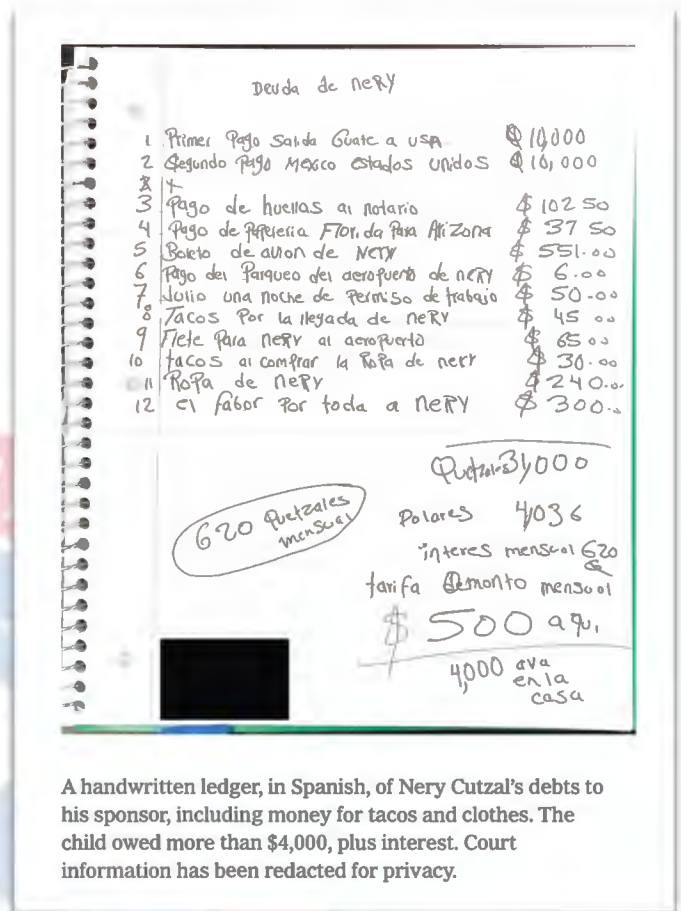 Deuda de NeRY
1 Primer Pago Salida Guate a USA $ 10,000
2 Segundo Pago Mexico Estados Unidos $ 10,000
3 Pago de huellas al notario $ 102 50
4 Pago de Papeleria Florida Para Arizona $ 37 50
5 Boleto de avion de NERY $ 551.00
6 Pago del Parqueo del aeropuerto de neRY $ 6.00
7 Julio una noche de Permiso de trabajo $ 50.00
8 Tacos Por la llegada de neRY $ 45 00
9 Flete Para neRY al aeropuerto $ 65 00
10 tacos al comprar la Ropa de nery $ 30.00
11 ROPa de neRY $ 240.00
12 el fabor Por toda a neRY $ 300..
Quetzales 31,000
620 Quetzales
mensual
Dolares 4,036
interes mensual 620
tarifa monto mensual
$ 500 aqui
4,000
en la
casa
A handwritten ledger, in Spanish, of Nery Cutzal's debts to
his sponsor, including money for tacos and clothes. The
child owed more than $4,000, plus interest. Court
information has been redacted for privacy.